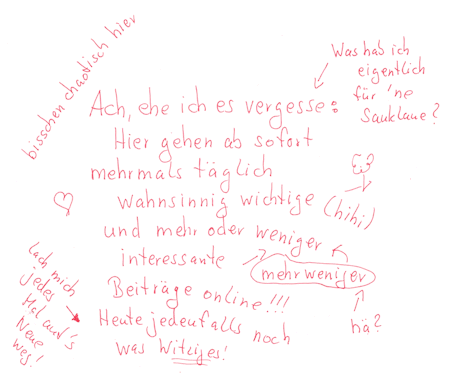 bisschen chaotisch hier
Was hab ich
eigentlich
für 'ne
Sauklaue?
Ach, ehe ich es vergesse:
Hier gehen ab sofort
mehrmals täglich
wahnsinnig wichtige (hihi)
und mehr oder weniger
interessante
mehr weniger
hä?
Beiträge online!!!
Heute jedenfalls noch
was Witziges!
Lach mich
jedes
Mal auf's
Neue
weg!